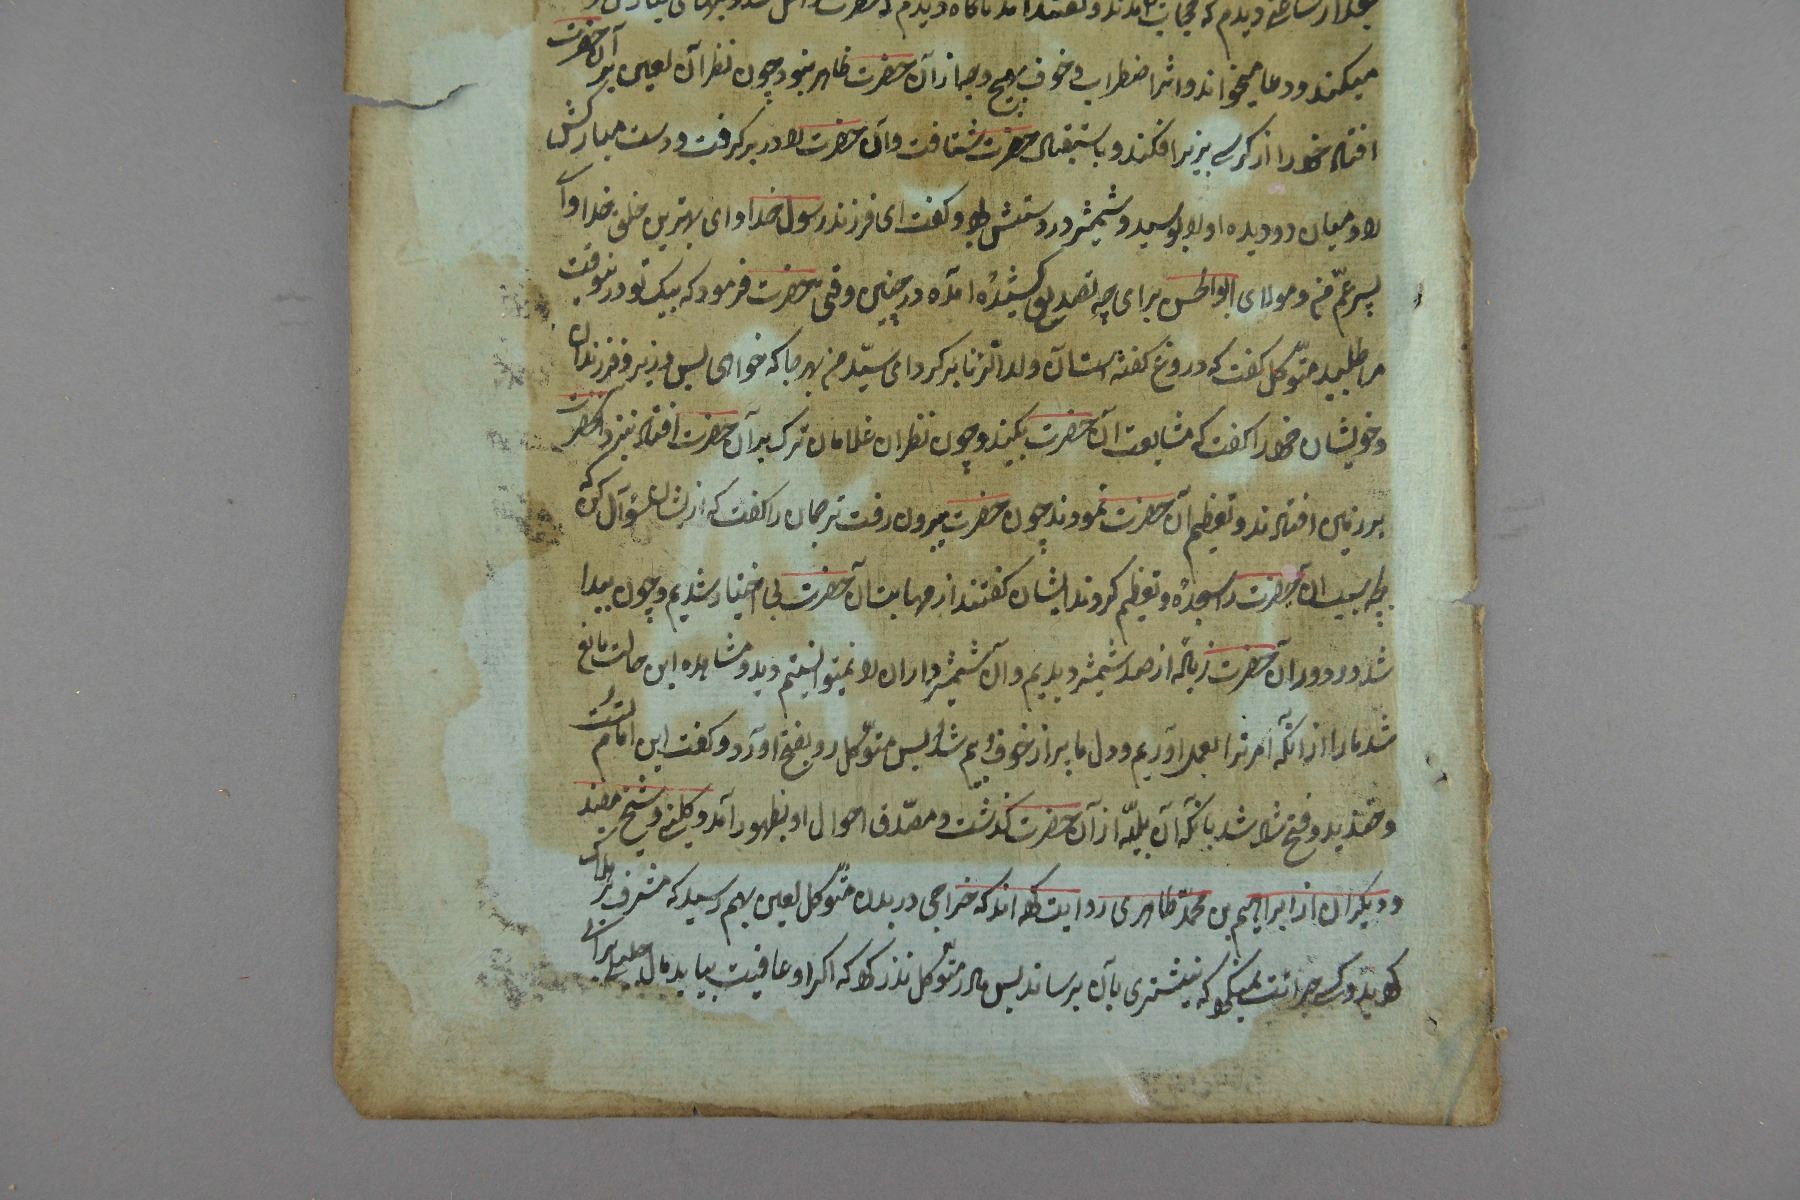 بعد از ساعتی دیدم که حجاب بلند و گفتند آمد ناگاه دیدم که حضرت داخل شد و لبهای مبارکش
میکند و دعا میخواند و اثر اضطراب و خوف بهیچ وجه از آن حضرت ظاهر نبود چون نظر آن لعین بر آن حضرت
افتاد خود را از کرسی بزیر افکند و باستقبال حضرت شتافت و آن حضرت را در بر گرفت و دست مبارکش
را و میان دو دیده او را بوسید و شمشیر در دستش بود و گفت ای فرزند رسول خدا و ای بهترین خلق خدا و ای
پسر عم من و مولای ابوالحسن برای چه تصدیع کشیده آمده در چنین وقتی حضرت فرمود که پیک تو در این وقت
مرا طلبید متوکل گفت که دروغ گفته است آن ولد الزنا برگرد ای سید من بهر جا که خواهی پس وزیر و فرزندان
و خویشان خود را گفت که مشایعت آن حضرت بکنید و چون نظر آن غلامان ترک بر آن حضرت افتاد نزد آن حضرت
بر زمین افتادند و تعظیم آن حضرت نمودند چون حضرت بیرون رفت ترجمان را گفت که از ایشان سؤال کن که
بچه سبب آن حضرت را سجده و تعظیم کردند ایشان گفتند از مهابت آن حضرت بی اختیار شدیم و چون پیدا
شد در دور آن حضرت زیاده از صد شمشیر دیدیم و آن شمشیرداران را نمیتوانستیم دید و مشاهده این حالت مانع
شد ما را از آنکه امر ترا بعمل آوریم و دل ما پر از خوف و بیم شد پس متوکل رو بفتح آورد و گفت این امام تست
و خندید و فتح شاد شد بآنکه آن بلیه از آن حضرت گذشت و مصدق احوال او بظهور آمد و کلینی و شیخ مفید
و دیگران از ابراهیم بن محمد طاهری روایت کرده اند که خراجی در بدن متوکل لعین بهم رسید که مشرف بر هلاک
گردید و کسی جرأت نمیکرد که نیشتری بآن برساند پس مادر متوکل نذر کرد که اگر او عافیت بیابد مال جلیلی برای